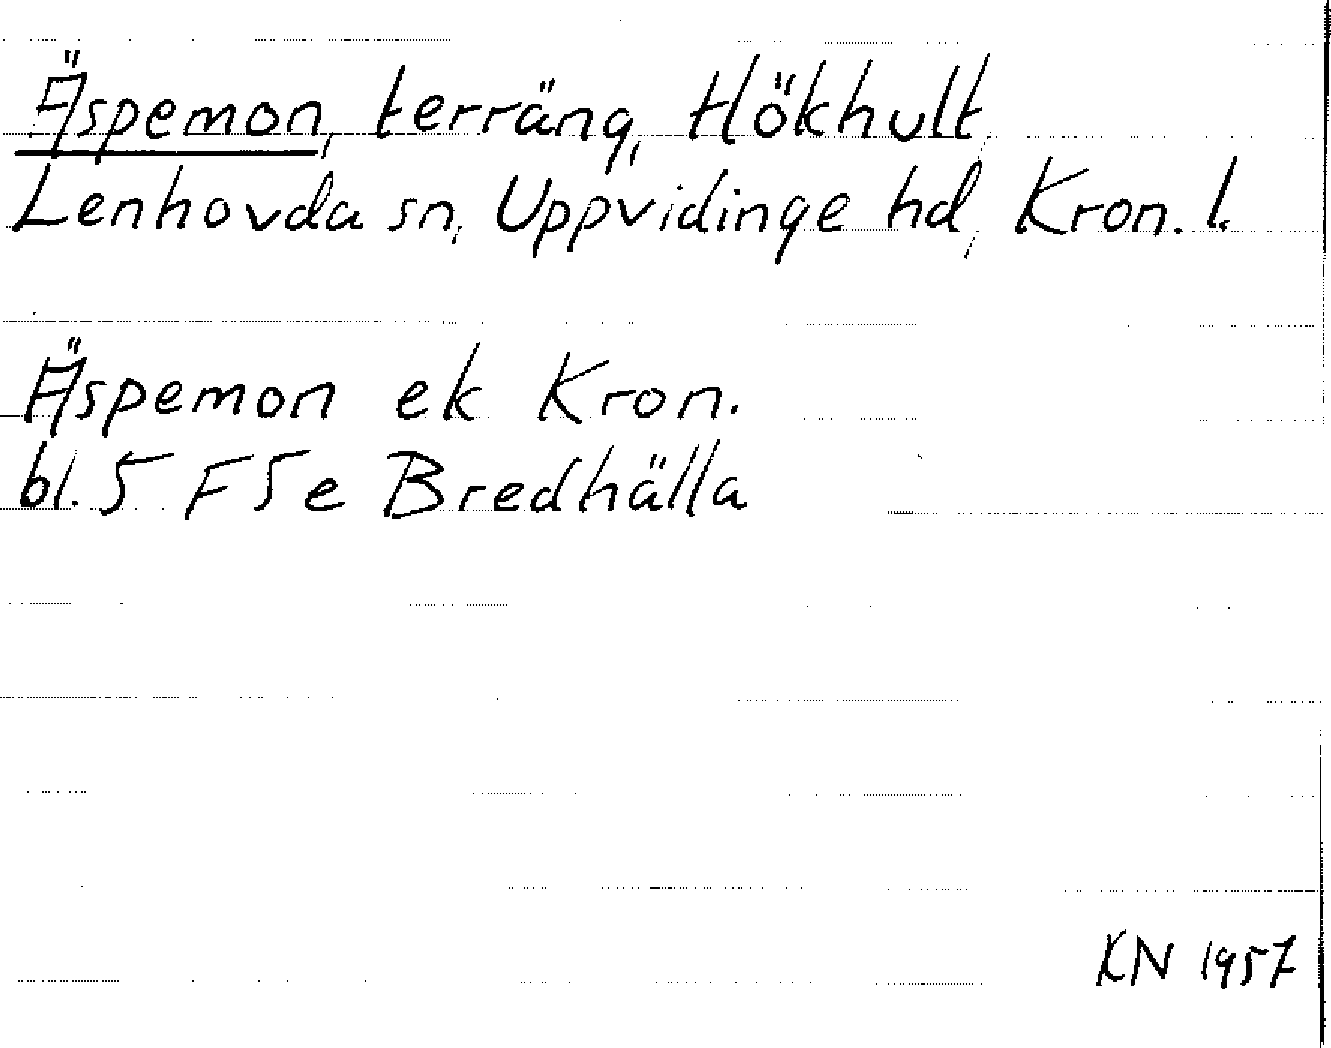 Äspemon, terräng, Hökhult,
Lenhovda sn, Uppvidinge hd, Kron. l.
Äspemon ek Kron.
bl. 5 F5e Bredhälla
KN 1957